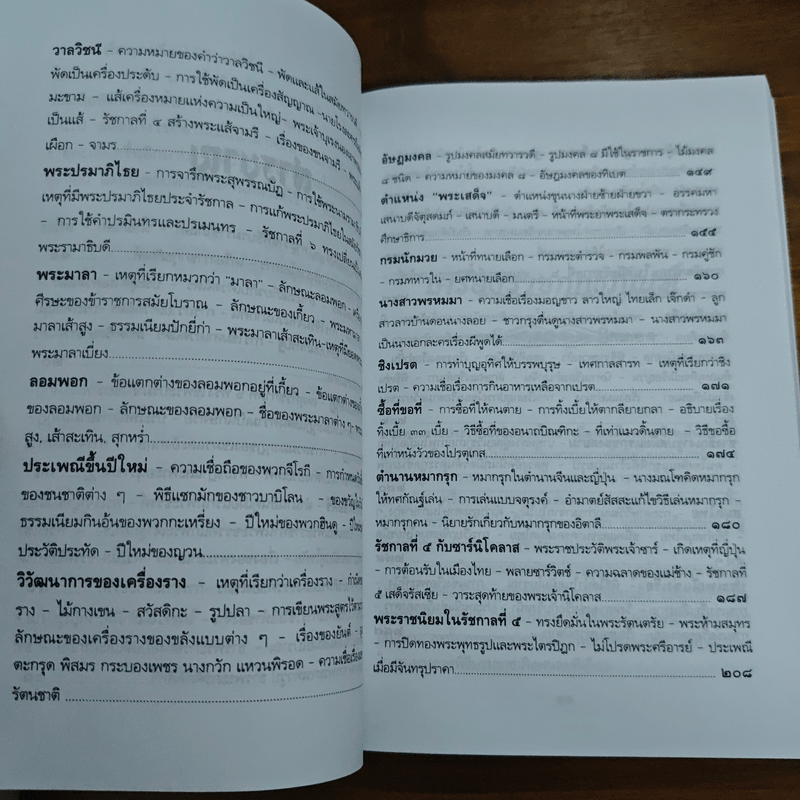 วาลวิชนี – ความหมายของคำว่าวาลวิชนี – พัดและแส้ในสมัยทวารวดี
พัดเป็นเครื่องประดับ – การใช้พัดเป็นเครื่องสัญญาณ
มะขาม – แส้เครื่องหมายแห่งความเป็นใหญ่ –
เป็นแส้ – รัชกาลที่ ๔ สร้างพระแส้จามรี – เรื่องของขนจามรี –
เผือก – จามร
พระปรมาภิไธย – การจารึกพระสุพรรณบัฏ – การใช้พระนาม
เหตุที่มีพระปรมาภิไธยประจำรัชกาล – การแก้พระปรมาภิไธย
– การใช้คำปรมินทรและปรเมนทร – รัชกาลที่ ๖ ทรงเปลี่ยน
พระรามาธิบดี
พระมาลา – เหตุที่เรียกหมวกว่า "มาลา" – ลักษณะลอมพอก –
ศีรษะของข้าราชการสมัยโบราณ – ลักษณะของเกี้ยว –
มาลาเส้าสูง – ธรรมเนียมปักยี่ก่า – พระมาลาเส้าสะเทิน –
พระมาลาเบี่ยง
ลอมพอก – ข้อแตกต่างของลอมพอกอยู่ที่เกี้ยว –
ของลอมพอก – ลักษณะของลอมพอก – ชื่อของพระมาลาต่าง ๆ –
สูง, เส้าสะเทิน, สุกหร่ำ
ประเพณีขึ้นปีใหม่ – ความเชื่อถือของพวกจีโรกี – การกำหนด
ของชนชาติต่าง ๆ – พิธีแซกมักของชาวบาบิโลน – ของขวัญ
ธรรมเนียมกินอ้นของพวกกะเหรี่ยง – ปีใหม่ของพวกฮินดู –
ประวัติประทัด – ปีใหม่ของญวน
วิวัฒนาการของเครื่องราง – เหตุที่เรียกว่าเครื่องราง –
ราง – ไม้กางเขน – สวัสดิกะ – รูปปลา – การเขียนพระสูตรไว้
ลักษณะของเครื่องรางของขลังแบบต่าง ๆ – เรื่องของยันต์ –
ตะกรุด พิสมร กระบองเพชร นางกวัก แหวนพิรอด – ความเชื่อ
รัตนชาติ
อัษฎมงคล – รูปมงคลสมัยทวารวดี – รูปมงคล ๘ มีใช้ในราชการ – ไม้มงคล
๘ ชนิด – ความหมายของมงคล ๘ – อัษฎมงคลของทิเบต ๑๔๙
ตำแหน่ง "พระเสด็จ" – ตำแหน่งขุนนางฝ่ายซ้ายฝ่ายขวา – อรรคมหา
เสนาบดีจัตุสดมภ์ – เสนาบดี – มนตรี – หน้าที่พระยาพระเสด็จ – ตรากระทรวง
ศึกษาธิการ ๑๕๕
กรมนักมวย – หน้าที่ทนายเลือก – กรมพระตำรวจ – กรมพลพัน – กรมคู่ชัก
– กรมทหารใน – ยศทนายเลือก ๑๖๐
นางสาวพรหมมา – ความเชื่อเรื่องมอญขาว ลาวใหญ่ ไทยเล็ก เจ๊กดำ – ลูก
สาวลาวบ้านดอนนางลอย – ชาวกรุงตื่นดูนางสาวพรหมมา – นางสาวพรหมมา
เป็นนางเอกละครเรื่องผีพูดได้ ๑๖๓
ชิงเปรต – การทำบุญอุทิศให้บรรพบุรุษ – เทศกาลสารท – เหตุที่เรียกว่าชิง
เปรต – ความเชื่อเรื่องการกินอาหารเหลือจากเปรต ๑๗๑
ซื้อที่ขอที่ – การซื้อที่ให้คนตาย – การทิ้งเบี้ยให้ตากลียายกลา – อธิบายเรื่อง
ทิ้งเบี้ย ๓๓ เบี้ย – วิธีซื้อที่ของอนาถบิณฑิกะ – ที่เท่าแมวดิ้นตาย – วิธีขอซื้อ
ที่เท่าหนังวัวของโปรตุเกส ๑๗๔
ตำนานหมากรุก – หมากรุกในตำนานจีนและญี่ปุ่น – นางมณโฑคิดหมากรุก
ให้ทศกัณฐ์เล่น – การเล่นแบบจตุรงค์ – อำมาตย์สัสสะแก้ไขวิธีเล่นหมากรุก –
หมากรุกคน – นิยายรักเกี่ยวกับหมากรุกของอิตาลี ๑๘๐
รัชกาลที่ ๕ กับซาร์นิโคลาส – พระราชประวัติพระเจ้าซาร์ – เกิดเหตุที่ญี่ปุ่น
– การต้อนรับในเมืองไทย – พลายซาร์วิตซ์ – ความฉลาดของแม่ช้าง – รัชกาลที่
๕ เสด็จรัสเซีย – วาระสุดท้ายของพระเจ้านิโคลาส ๑๘๗
พระราชนิยมในรัชกาลที่ ๔ – ทรงยึดมั่นในพระรัตนตรัย – พระห้ามสมุทร
– การปิดทองพระพุทธรูปและพระไตรปิฎก – ไม่โปรดพระศรีอารย์ – ประเพณี
เมื่อมีจันทรุปราคา ๒๐๘